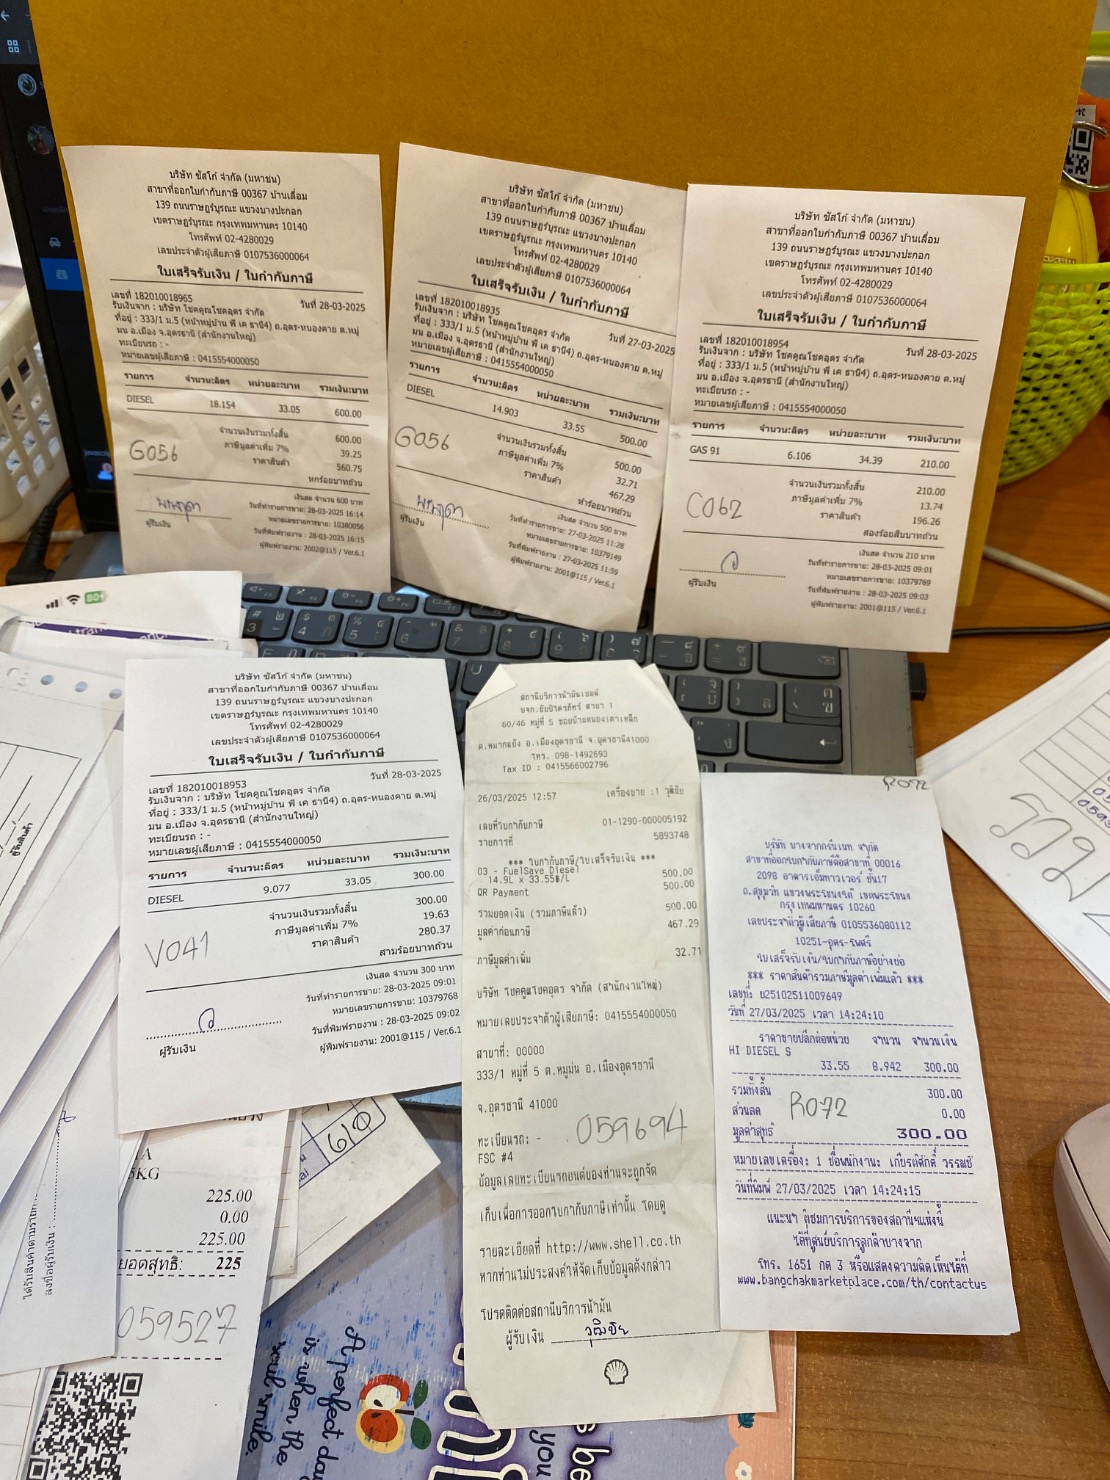 บริษัท ซัสโก้ จำกัด (มหาชน)
สาขาที่ออกใบกำกับภาษี 00367 ป่านเลื่อม
139 ถนนราษฎร์บูรณะ แขวงบางปะกอก
เขตราษฎร์บูรณะ กรุงเทพมหานคร 10140
โทรศัพท์ 02-4280029
เลขประจำตัวผู้เสียภาษี 0107536000064
ใบเสร็จรับเงิน / ใบกำกับภาษี
เลขที่ 182010018965 วันที่ 28-03-2025
รับเงินจาก : บริษัท โชคคูณโชคอุดร จำกัด
ที่อยู่ : 333/1 ม.5 (หน้าหมู่บ้าน พี เค ธานี4) ถ.อุดร-หนองคาย ต.หมู
มน อ.เมือง จ.อุดรธานี (สำนักงานใหญ่)
ทะเบียนรถ : -
หมายเลขผู้เสียภาษี : 0415554000050
รายการ จำนวน:ลิตร หน่วยละ:บาท รวมเงิน:บาท
DIESEL 18.154 33.05 600.00
จำนวนเงินรวมทั้งสิ้น 600.00
ภาษีมูลค่าเพิ่ม 7% 39.25
ราคาสินค้า 560.75
หกร้อยบาทถ้วน
G056
เงินสด จำนวน 600 บาท
วันที่ทำรายการขาย: 28-03-2025 16:14
หมายเลขรายการขาย: 10380056
วันที่พิมพ์รายงาน : 28-03-2025 16:15
ผู้พิมพ์รายงาน: 2002@115 / Ver.6.1
ผู้รับเงิน
บริษัท ซัสโก้ จำกัด (มหาชน)
สาขาที่ออกใบกำกับภาษี 00367 ป่านเลื่อม
139 ถนนราษฎร์บูรณะ แขวงบางปะกอก
เขตราษฎร์บูรณะ กรุงเทพมหานคร 10140
โทรศัพท์ 02-4280029
เลขประจำตัวผู้เสียภาษี 0107536000064
ใบเสร็จรับเงิน / ใบกำกับภาษี
เลขที่ 182010018935 วันที่ 27-03-2025
รับเงินจาก : บริษัท โชคคูณโชคอุดร จำกัด
ที่อยู่ : 333/1 ม.5 (หน้าหมู่บ้าน พี เค ธานี4) ถ.อุดร-หนองคาย ต.หมู
มน อ.เมือง จ.อุดรธานี (สำนักงานใหญ่)
ทะเบียนรถ : -
หมายเลขผู้เสียภาษี : 0415554000050
รายการ จำนวน:ลิตร หน่วยละ:บาท รวมเงิน:บาท
DIESEL 14.903 33.55 500.00
จำนวนเงินรวมทั้งสิ้น 500.00
ภาษีมูลค่าเพิ่ม 7% 32.71
ราคาสินค้า 467.29
ห้าร้อยบาทถ้วน
G056
เงินสด จำนวน 500 บาท
วันที่ทำรายการขาย: 27-03-2025 11:28
หมายเลขรายการขาย: 10379149
วันที่พิมพ์รายงาน : 27-03-2025 11:59
ผู้พิมพ์รายงาน: 2001@115 / Ver.6.1
ผู้รับเงิน
บริษัท ซัสโก้ จำกัด (มหาชน)
สาขาที่ออกใบกำกับภาษี 00367 ป่านเลื่อม
139 ถนนราษฎร์บูรณะ แขวงบางปะกอก
เขตราษฎร์บูรณะ กรุงเทพมหานคร 10140
โทรศัพท์ 02-4280029
เลขประจำตัวผู้เสียภาษี 0107536000064
ใบเสร็จรับเงิน / ใบกำกับภาษี
เลขที่ 182010018954 วันที่ 28-03-2025
รับเงินจาก : บริษัท โชคคูณโชคอุดร จำกัด
ที่อยู่ : 333/1 ม.5 (หน้าหมู่บ้าน พี เค ธานี4) ถ.อุดร-หนองคาย ต.หมู
มน อ.เมือง จ.อุดรธานี (สำนักงานใหญ่)
ทะเบียนรถ : -
หมายเลขผู้เสียภาษี : 0415554000050
รายการ จำนวน:ลิตร หน่วยละ:บาท รวมเงิน:บาท
GAS 91 6.106 34.39 210.00
จำนวนเงินรวมทั้งสิ้น 210.00
ภาษีมูลค่าเพิ่ม 7% 13.74
ราคาสินค้า 196.26
สองร้อยสิบบาทถ้วน
C062
เงินสด จำนวน 210 บาท
วันที่ทำรายการขาย: 28-03-2025 09:01
หมายเลขรายการขาย: 10379769
วันที่พิมพ์รายงาน : 28-03-2025 09:03
ผู้พิมพ์รายงาน: 2001@115 / Ver.6.1
ผู้รับเงิน
บริษัท ซัสโก้ จำกัด (มหาชน)
สาขาที่ออกใบกำกับภาษี 00367 ป่านเลื่อม
139 ถนนราษฎร์บูรณะ แขวงบางปะกอก
เขตราษฎร์บูรณะ กรุงเทพมหานคร 10140
โทรศัพท์ 02-4280029
เลขประจำตัวผู้เสียภาษี 0107536000064
ใบเสร็จรับเงิน / ใบกำกับภาษี
เลขที่ 182010018953 วันที่ 28-03-2025
รับเงินจาก : บริษัท โชคคูณโชคอุดร จำกัด
ที่อยู่ : 333/1 ม.5 (หน้าหมู่บ้าน พี เค ธานี4) ถ.อุดร-หนองคาย ต.หมู่
มน อ.เมือง จ.อุดรธานี (สำนักงานใหญ่)
ทะเบียนรถ : -
หมายเลขผู้เสียภาษี : 0415554000050
รายการ จำนวน:ลิตร หน่วยละ:บาท รวมเงิน:บาท
DIESEL 9.077 33.05 300.00
จำนวนเงินรวมทั้งสิ้น 300.00
ภาษีมูลค่าเพิ่ม 7% 19.63
ราคาสินค้า 280.37
สามร้อยบาทถ้วน
V041
เงินสด จำนวน 300 บาท
วันที่ทำรายการขาย: 28-03-2025 09:01
หมายเลขรายการขาย: 10379768
วันที่พิมพ์รายงาน : 28-03-2025 09:02
ผู้พิมพ์รายงาน: 2001@115 / Ver.6.1
ผู้รับเงิน
สถานีบริการน้ำมันเชลล์
60/46 หมู่ที่ 5
ต.หมากแข้ง อ.เมืองอุดรธานี จ.อุดรธานี41000
โทร. 098-1492693
Tax ID : 0415566002796
26/03/2025 12:57 เครื่องขาย :1 วุฒิชัย
เลขที่ใบกำกับภาษี 01-1290-000005192
รายการที่ 5893748
*** ใบกำกับภาษี/ใบเสร็จรับเงิน ***
03 - FuelSave Diesel 500.00
14.9L x 33.55฿/L
QR Payment 500.00
รวมยอดเงิน (รวมภาษีแล้ว) 500.00
มูลค่าก่อนภาษี 467.29
ภาษีมูลค่าเพิ่ม 32.71
บริษัท โชคคูณโชคอุดร จำกัด (สำนักงานใหญ่)
หมายเลขประจำตัวผู้เสียภาษี: 0415554000050
สาขาที่: 00000
333/1 หมู่ที่ 5 ต.หมูม่น อ.เมืองอุดรธานี
จ.อุดรธานี 41000
ทะเบียนรถ: - 059694
FSC #4
ข้อมูลเลขทะเบียนรถยนต์ของท่านจะถูกจัด
เก็บเพื่อการออกใบกำกับภาษีเท่านั้น โดยดู
รายละเอียดที่ http://www.shell.co.th
หากท่านไม่ประสงค์ให้จัดเก็บข้อมูลดังกล่าว
โปรดติดต่อสถานีบริการน้ำมัน
ผู้รับเงิน วุฒิชัย
R072
บริษัท บางจากกรีนเนท จำกัด
สาขาที่ออกใบกำกับภาษีคือสาขาที่ 00016
2098 อาคารเอ็มทาวเวอร์ ชั้น17
ถ.สุขุมวิท แขวงพระโขนงใต้ เขตพระโขนง
กรุงเทพมหานคร 10260
เลขประจำตัวผู้เสียภาษี 0105536080112
10251-อุดร-โพศรี
ใบเสร็จรับเงิน/ใบกำกับภาษีอย่างย่อ
*** ราคาสินค้ารวมภาษีมูลค่าเพิ่มแล้ว ***
เลขที่: 025102511009649
วันที่ 27/03/2025 เวลา 14:24:10
ราคาขายปลีกต่อหน่วย จำนวน จำนวนเงิน
HI DIESEL S
33.55 8.942 300.00
รวมทั้งสิ้น 300.00
ส่วนลด R072 0.00
มูลค่าสุทธิ 300.00
หมายเลขเครื่อง: 1 ชื่อพนักงาน: เกียรติศักดิ์ วรรณชั
วันที่พิมพ์ 27/03/2025 เวลา 14:24:15
แนะนำ ติชมการบริการของสถานีฯแห่งนี้
ได้ที่ศูนย์บริการลูกค้าบางจาก
โทร. 1651 กด 3 หรือแสดงความคิดเห็นได้ที่
www.bangchakmarketplace.com/th/contactus
5KG
225.00
0.00
225.00
ยอดสุทธิ: 225
059527
ลงชื่อผู้รับเงิน :
A perfect day
is when the
smile.
you
รวม